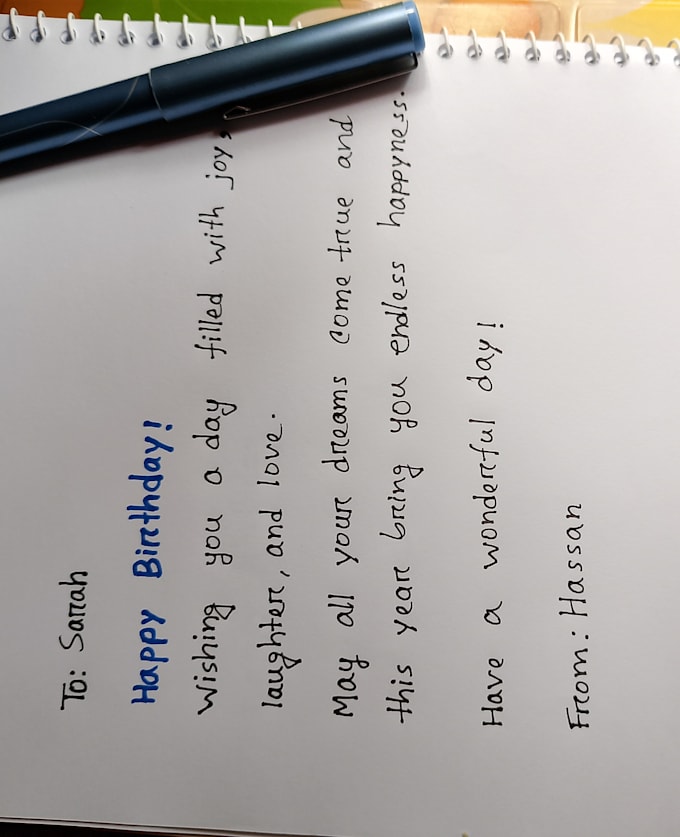 To: Sarah
Happy Birthday!
Wishing you a day filled with joy,
laughter, and love.
May all your dreams come true and
this year bring you endless happyness.
Have a wonderful day!
From: Hassan